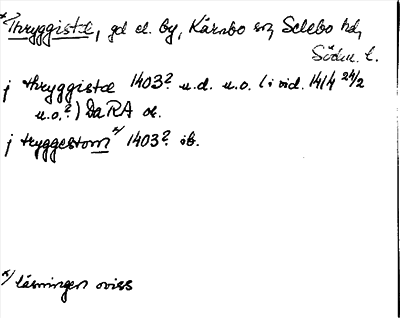 *Thryggista, gd el. by, Kärnbo sn, Selebo hd,
Södm. l.
j thryggista 1403? u.d. u.o. (i vid. 1414 24/2
u.o.?) DaRA or.
j tryggestom x) 1403? ib.
x) läsningen oviss